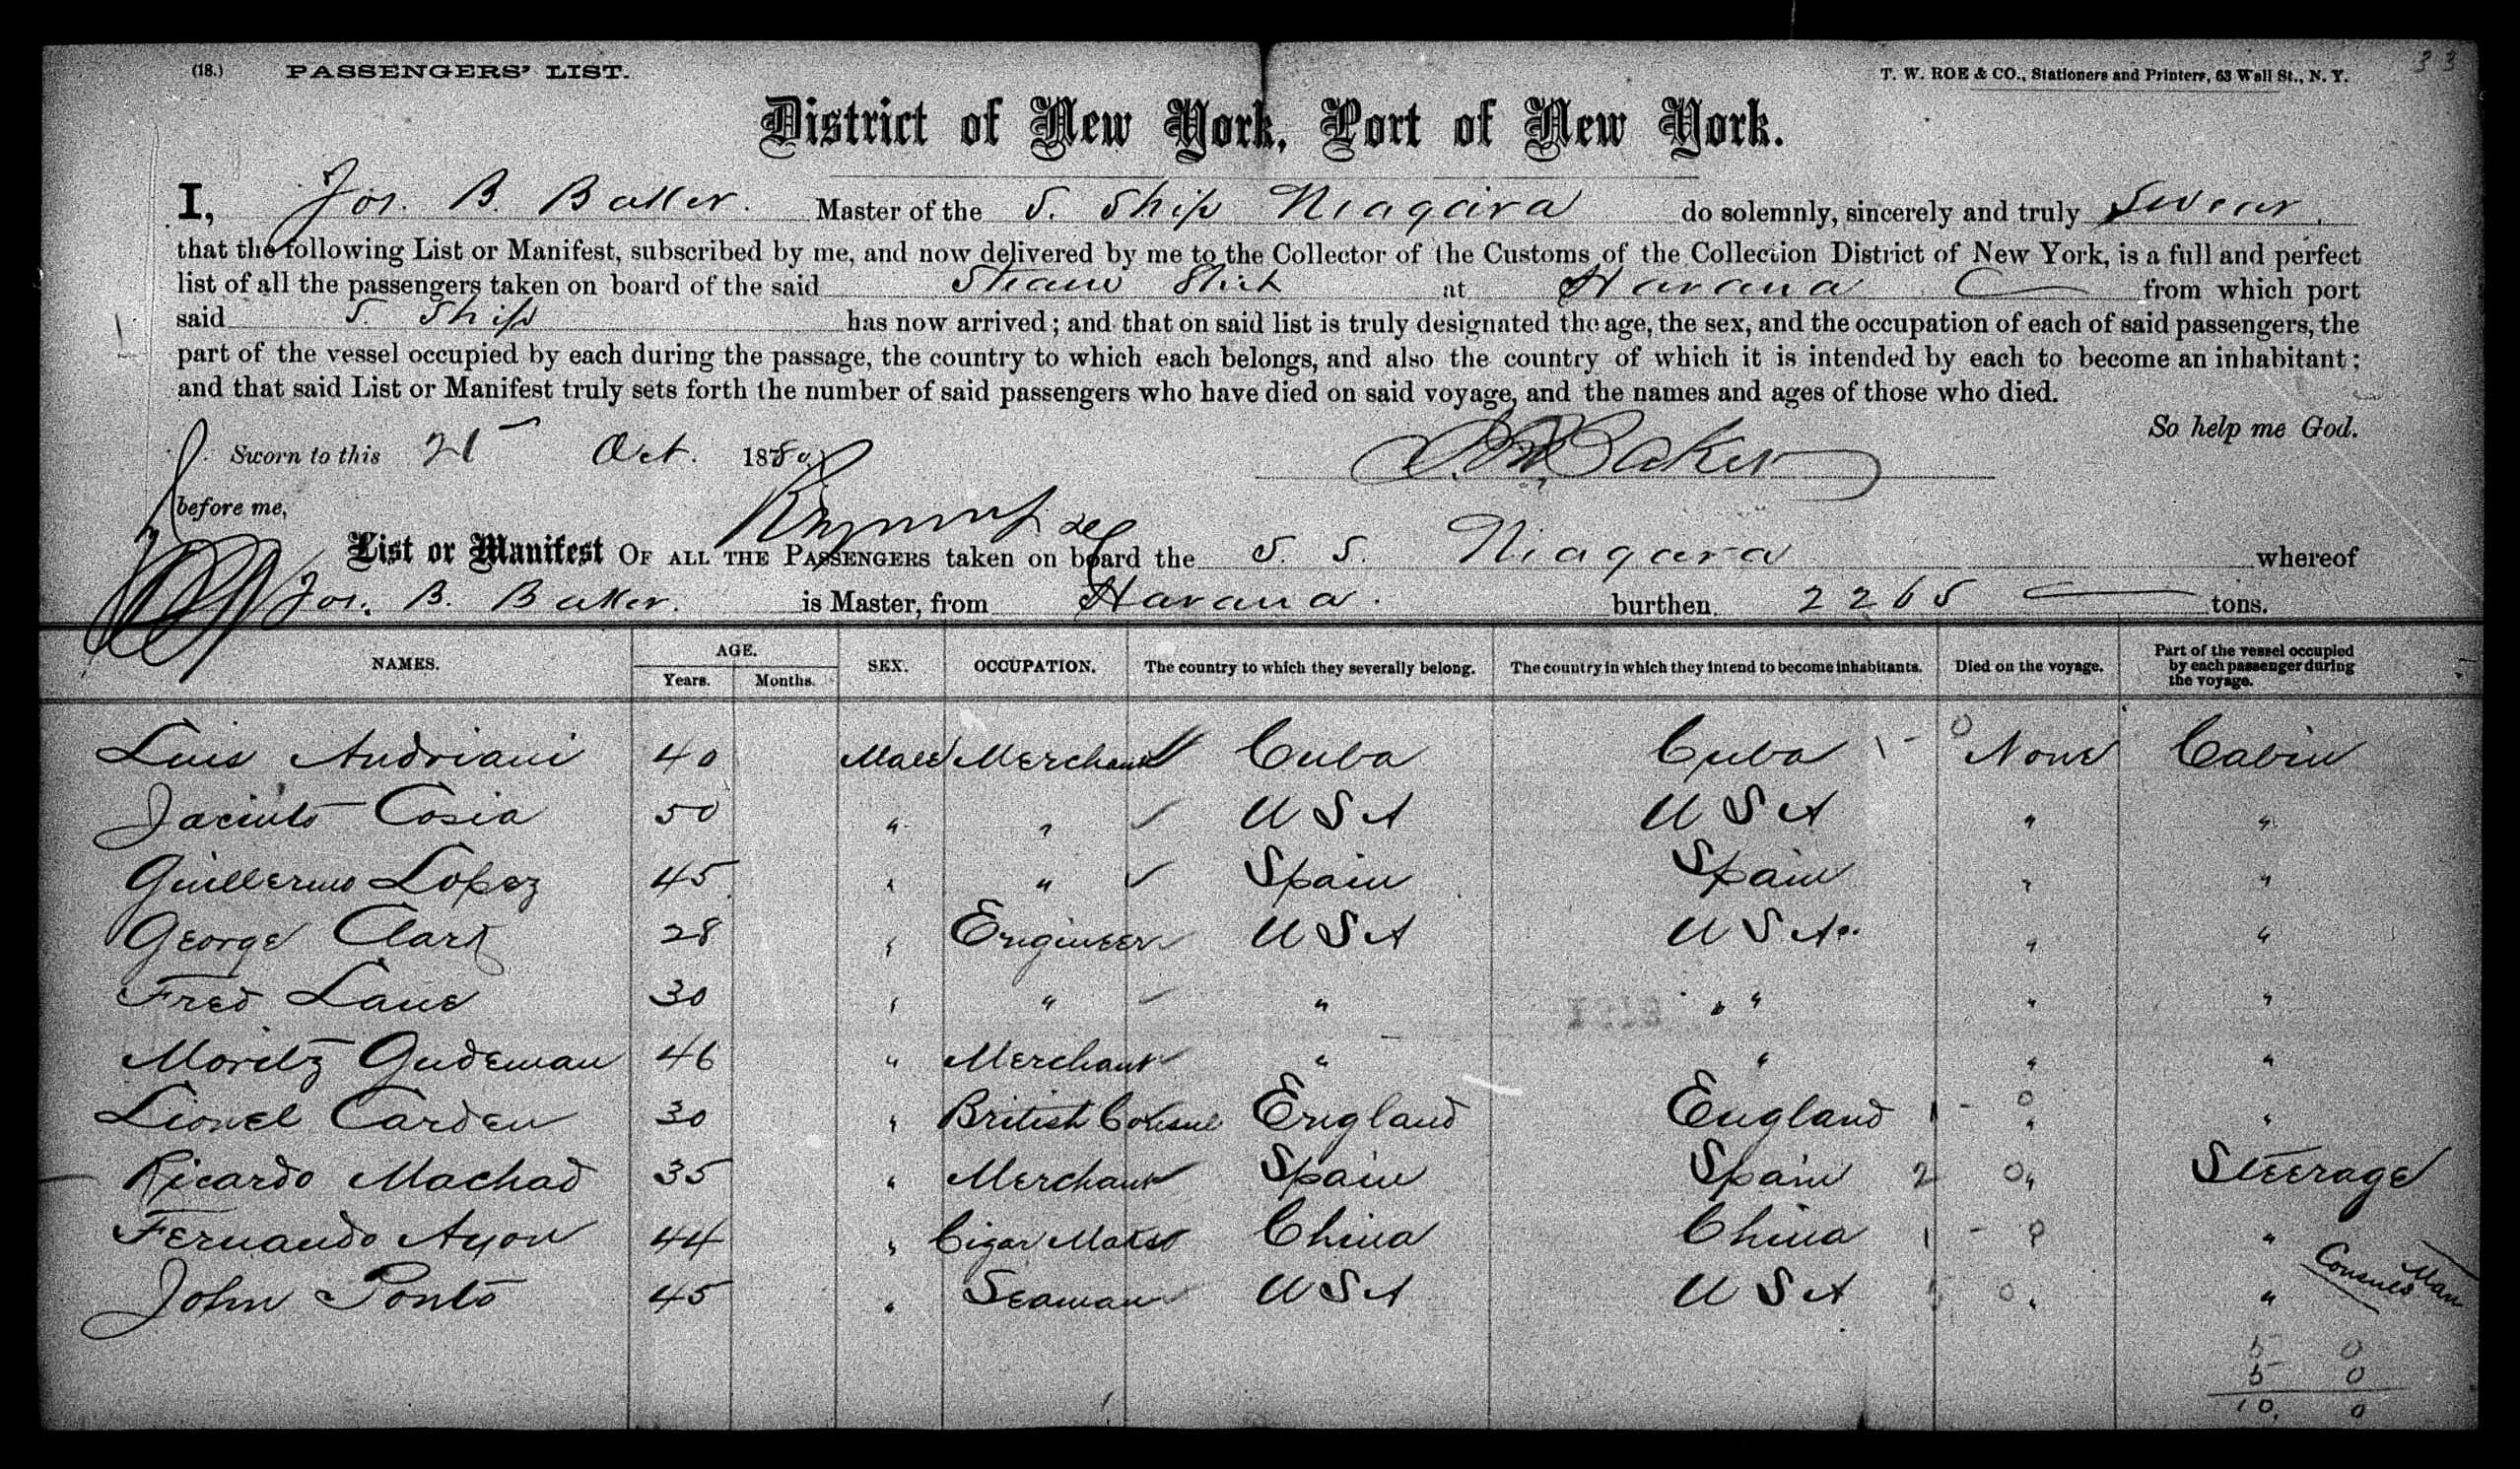 (18.) PASSENGERS' LIST. T. W. ROE & CO., Stationers and Printers, 63 Wall St., N. Y. 33
District of New York, Port of New York.
I, Jos. B. Baker. Master of the S. Ship Niagara do solemnly, sincerely and truly Swear.
that the following List or Manifest, subscribed by me, and now delivered by me to the Collector of the Customs of the Collection District of New York, is a full and perfect
list of all the passengers taken on board of the said Steam Ship at Havana from which port
said S. Ship has now arrived; and that on said list is truly designated the age, the sex, and the occupation of each of said passengers, the
part of the vessel occupied by each during the passage, the country to which each belongs, and also the country of which it is intended by each to become an inhabitant;
and that said List or Manifest truly sets forth the number of said passengers who have died on said voyage, and the names and ages of those who died.
So help me God.
Sworn to this 21 Oct. 1880. Baker
before me,
List or Manifest OF ALL THE PASSENGERS taken on board the S. S. Niagara whereof
Jos. B. Baker. is Master, from Havana. burthen. 2265 tons.
NAMES. AGE. Years. Months. SEX. OCCUPATION. The country to which they severally belong. The country in which they intend to become inhabitants. Died on the voyage. Part of the vessel occupied by each passenger during the voyage.
Luis Andriani 40 Male Merchant Cuba Cuba 1 - 0 None Cabin
Jacinto Cosia 50 " " U S A U S A " "
Guillermo Lopez 45 " " Spain Spain " "
George Clark 28 " Engineer U S A U S A. " "
Fred Lane 30 " " " " " "
Moritz Gudeman 46 " Merchant " " " "
Lionel Carden 30 " British Consul England England 1 - 0 " "
Ricardo Machad 35 " Merchant Spain Spain 2 0 " Steerage
Fernando Ayon 44 " Cigar Maker China China 1 - 0 "
John Ponto 45 " Seaman U S A U S A 0 " " Consuls Man
5 0
5 0
10. 0